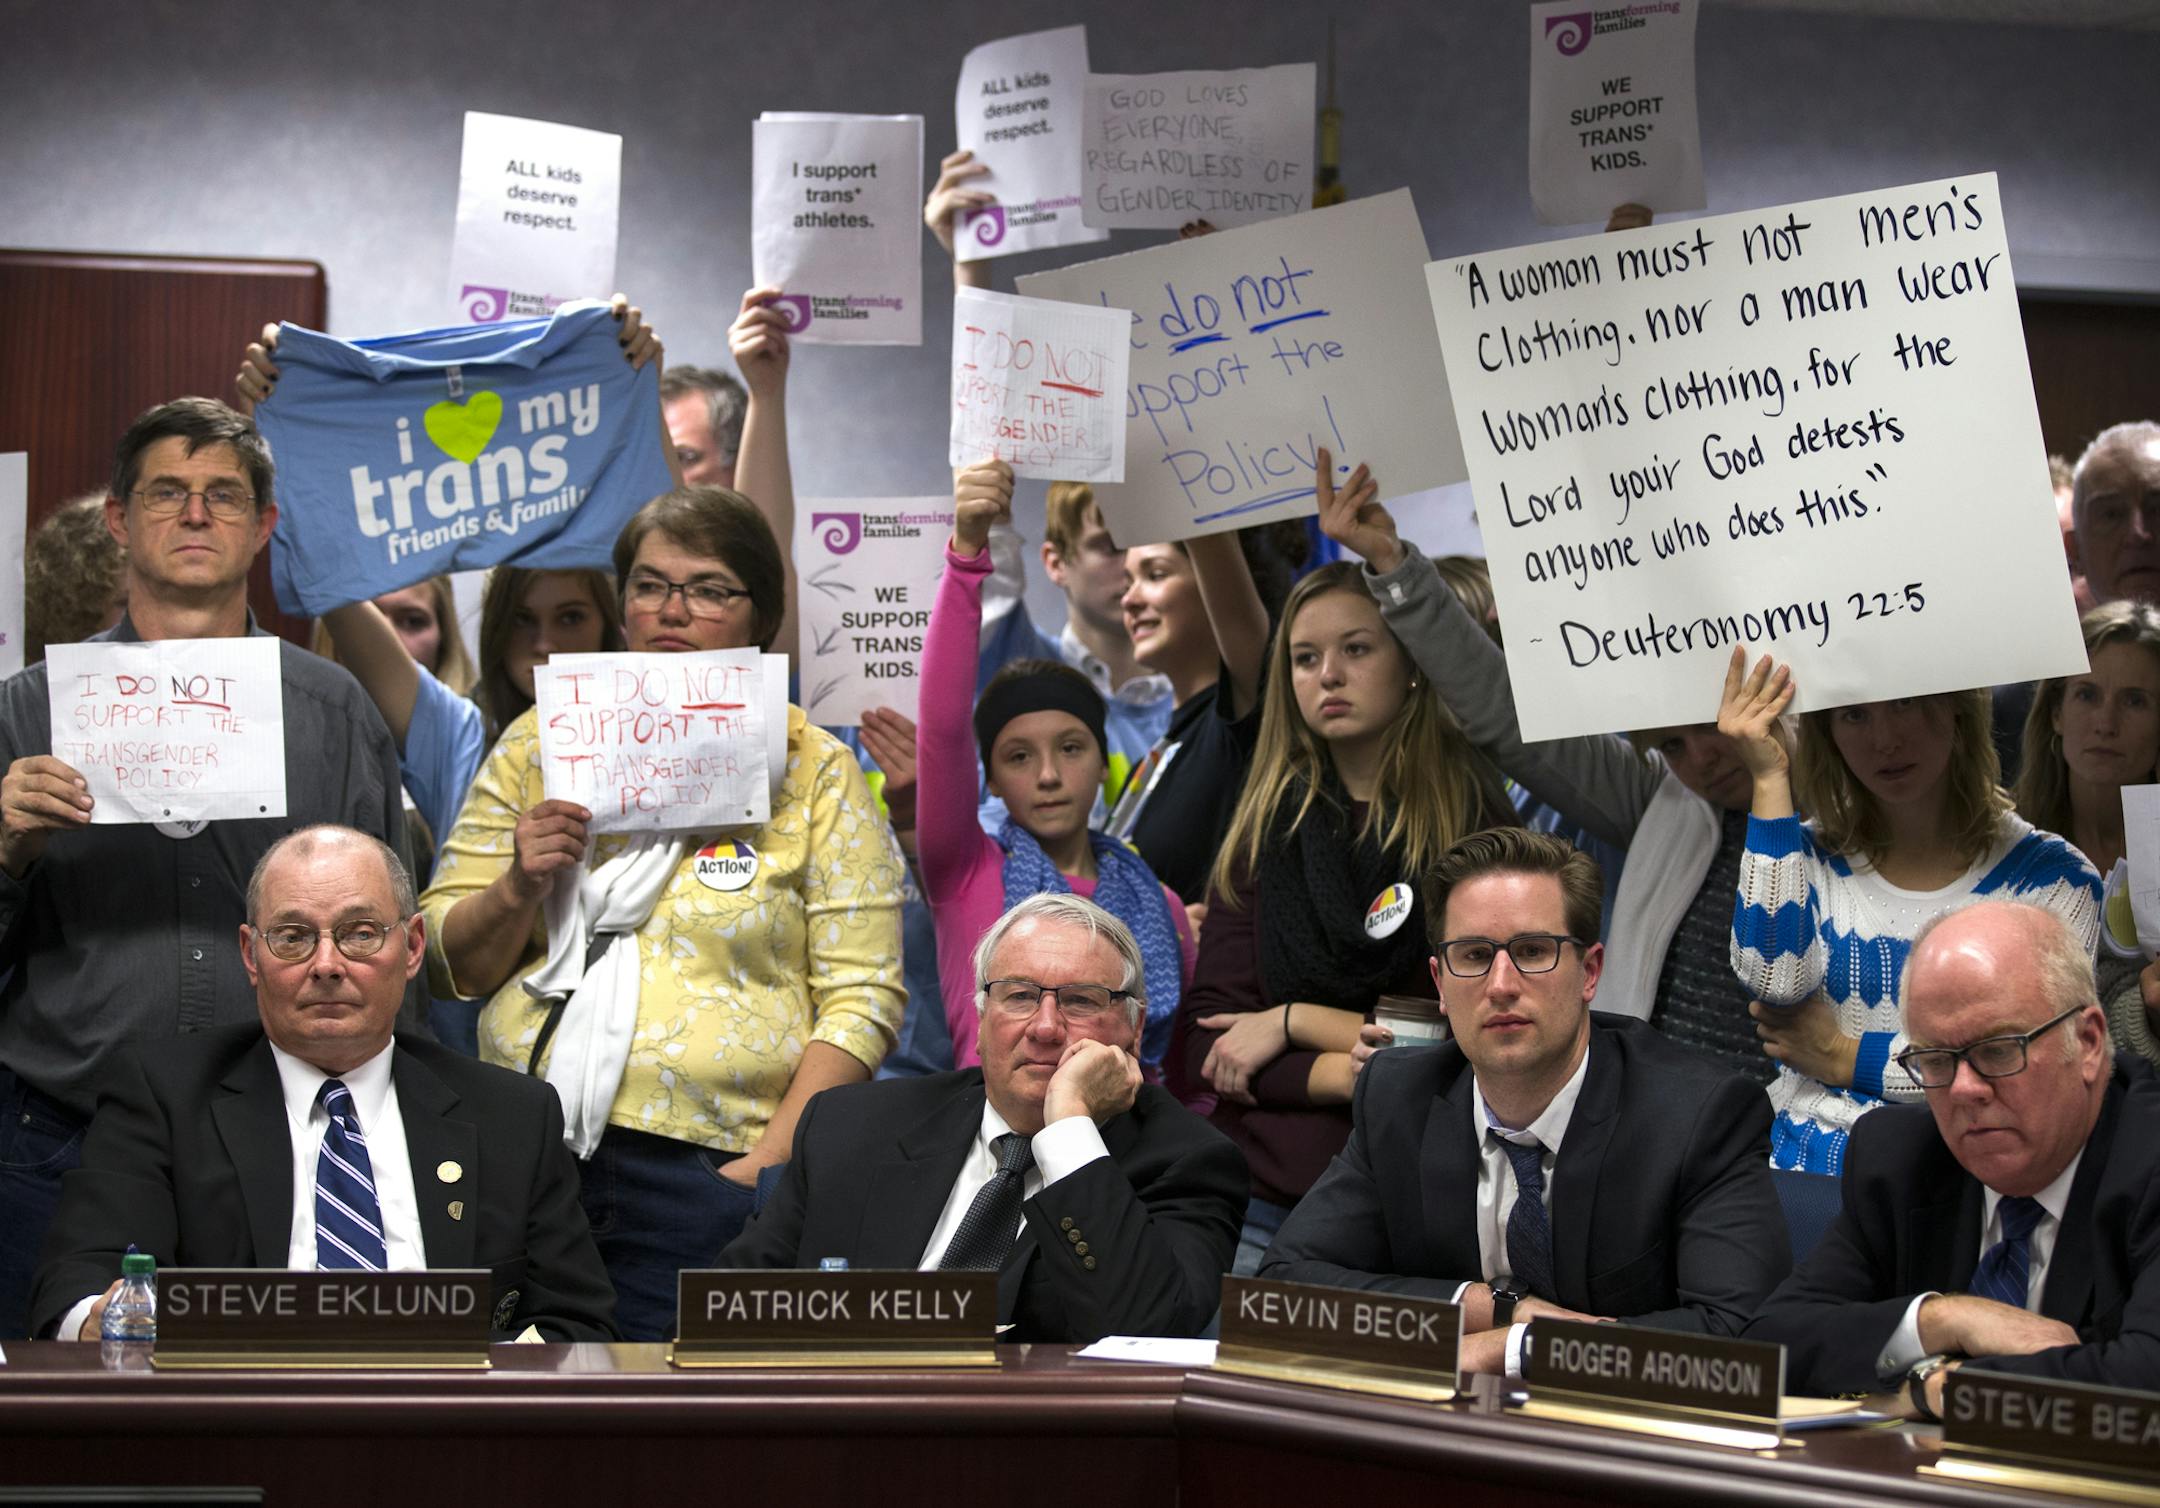 transforming
families
WE
SUPPORT
TRANS*
KIDS.
ALL kids
deserve
respect.
transforming
families
GOD LOVES
EVERYONE,
REGARDLESS OF
GENDER IDENTITY
ALL kids
deserve
respect.
transforming
families
I support
trans*
athletes.
transforming
families
"A woman must not men's
Clothing. nor a man wear
woman's clothing. for the
Lord your God detests
anyone who does this."
~ Deuteronomy 22:5
do not
the
Policy!
I DO NOT
SUPPORT THE
POLICY
i my
trans
friends & family
transforming
families
WE
SUPPORT
TRANS
KIDS.
I DO NOT
SUPPORT THE
TRANSGENDER
POLICY
I DO NOT
SUPPORT THE
TRANSGENDER
POLICY
ACTION!
ACTION!
STEVE EKLUND
PATRICK KELLY
KEVIN BECK
ROGER ARONSON
STEVE BEA